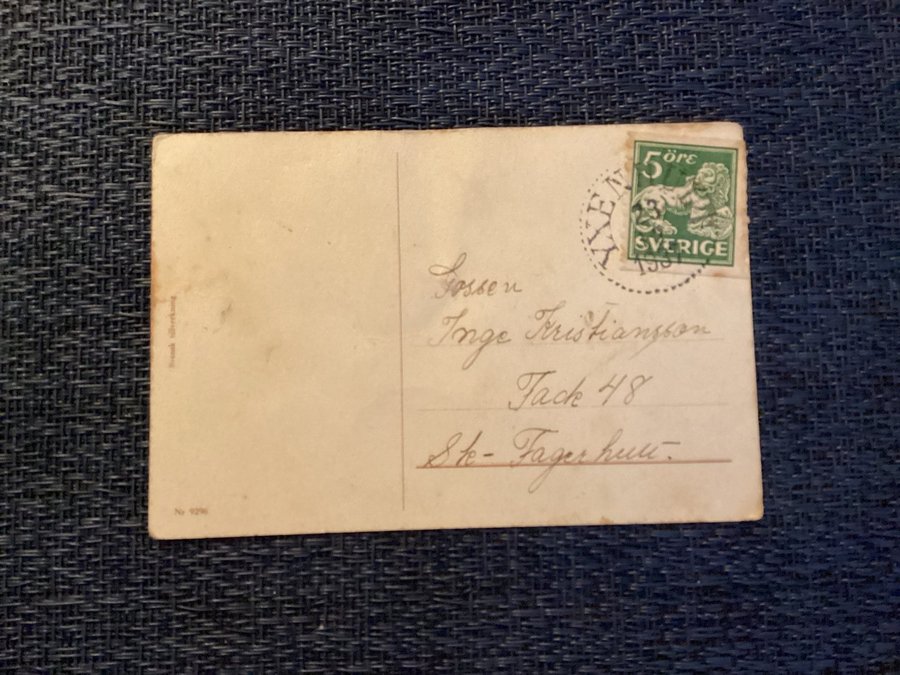 5 öre
SVERIGE
1937
Gossen
Inge Kristiansson
Fack 48
Sk- Fagerhult.
Svensk tillverkning
Nr 9296